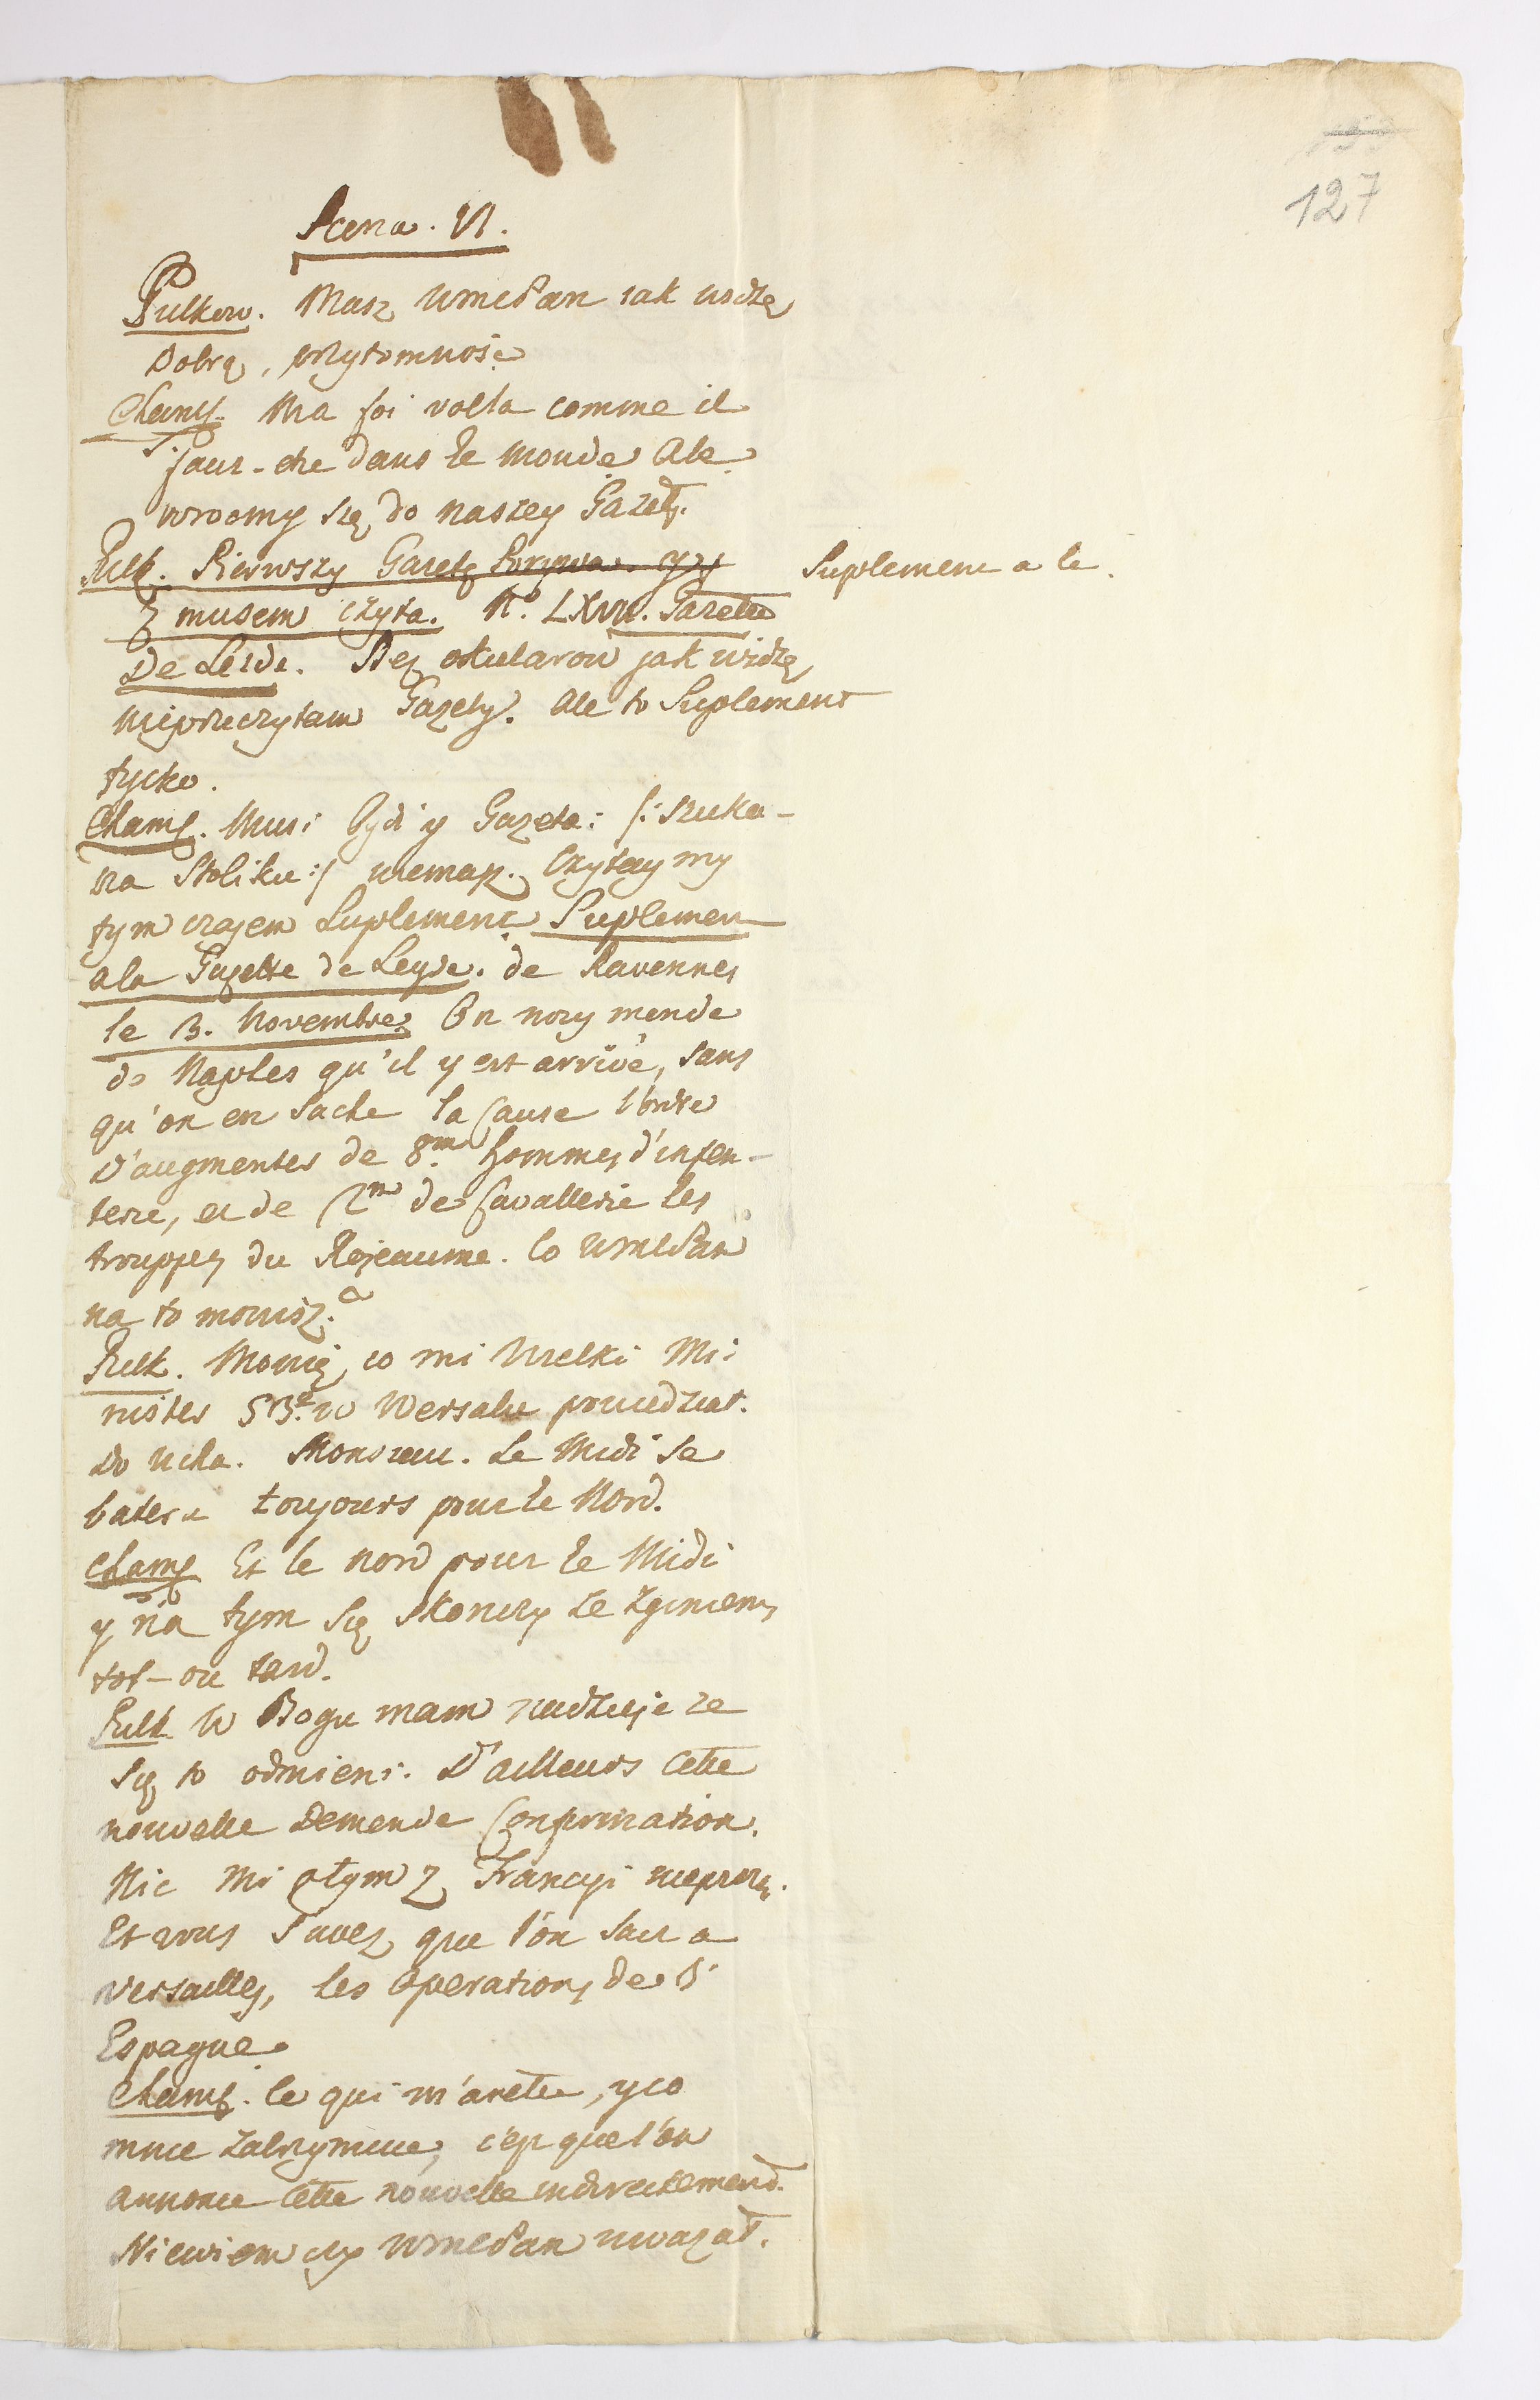 127
Scena. VI.
Pułkow. Masz WmcPan iak widzę
Dobrą, przytomność
Chamb. Ma foi voila comme il
faut etre dans le monde. Ale
wroćmy się do naszey Gazety.
Pułk. Pierwszy Gazetę Porywa. y z
musem czyta. No. LXVII. Gazette
Suplement a la
De Leide. Bez okularow jak widzę
nieprzeczytam Gazety. Ale to Suplement
tycko.
Chamb. Musi Bydź y Gazeta: /: szuka
na Stoliku :/ niemasz. Czytaymy
tym czasem Suplement. Suplement
a la Gazette de Leyde. de Ravennes
le 13. Novembre. On nous mende
de Naples qu'il y est arrivé, sans
qu'on en sache la Cause l'ordre
d'augmenter de 8.m hommes d'infen-
terie, et de 2m de Cavallerie les
trouppes du Rojeaume. Co WmcPan
na to mowisz.
Pułk. Mowię co mi Wielki Mi:
nister w Wersalu powiedział.
Do Ucha. Monsieur. Le Midi se
batera toujours pour le Nord.
Chamb. Et le nord pour le Midi
y na tym się skonczy ze zginiemy
tot-ou tard.
Pułk. W Bogu mam nadzieje ze
się to odmieni. D'ailleurs cette
nouvelle Demende Confirmation.
Nic mi otym z Francyi niepiszą.
Et vous savez que l'on sait a
Versailles, les Operations de l'
Espagne.
Chamb. Ce qui m'arette, y co
mnie zatrzymuie, c'est que l'on
annonce cette nouvelle indirectement.
Niewiem czy WmcPan uwazał.